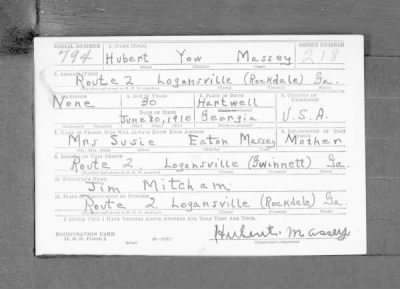 SERIAL NUMBER 1. NAME (Print) ORDER NUMBER
794 Hubert Yow Massey 218
(First) (Middle) (Last)
2. ADDRESS (Print)
Route 2 Logansville (Rockdale) Ga.
3. TELEPHONE 4. AGE IN YEARS 5. PLACE OF BIRTH 6. COUNTRY OF CITIZENSHIP
None 30 Hartwell
DATE OF BIRTH
June 20, 1910 Georgia U.S.A.
7. NAME OF PERSON WHO WILL ALWAYS KNOW YOUR ADDRESS 8. RELATIONSHIP OF THAT PERSON
Mrs Susie Eaton Massey Mother
9. ADDRESS OF THAT PERSON
Route 2 Logansville (Gwinnett) Ga
10. EMPLOYER'S NAME
Jim Mitcham
11. PLACE OF EMPLOYMENT OR BUSINESS
Route 2. Logansville (Rockdale) Ga.
I AFFIRM THAT I HAVE VERIFIED ABOVE ANSWERS AND THAT THEY ARE TRUE.
REGISTRATION CARD
D. S. S. Form 1
Hubert. Massey
(Registrant's signature)